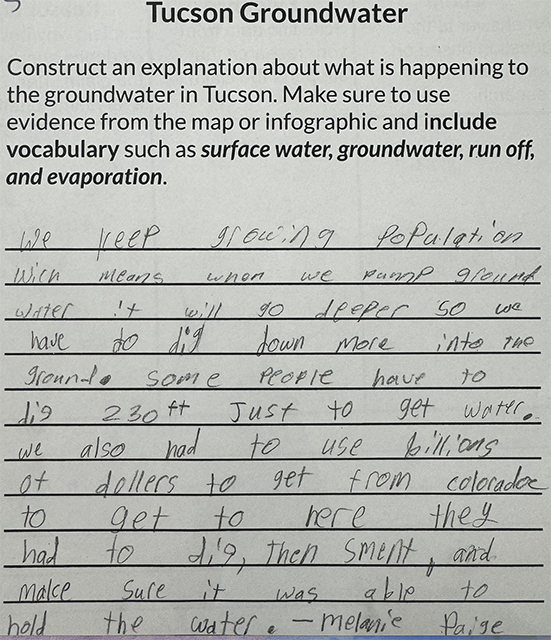 Tucson Groundwater
Construct an explanation about what is happening to
the groundwater in Tucson. Make sure to use
evidence from the map or infographic and include
vocabulary such as surface water, groundwater, run off,
and evaporation.
We keep growing population
wich means when we pump ground
water it will go deeper so we
have to dig down more into the
ground. some people have to
dig 230 ft Just to get water.
we also had to use billions
of dollers to get from coloradoe
to get to here they
had to dig, then sment, and
make sure it was able to
hold the water. - melanie Paige